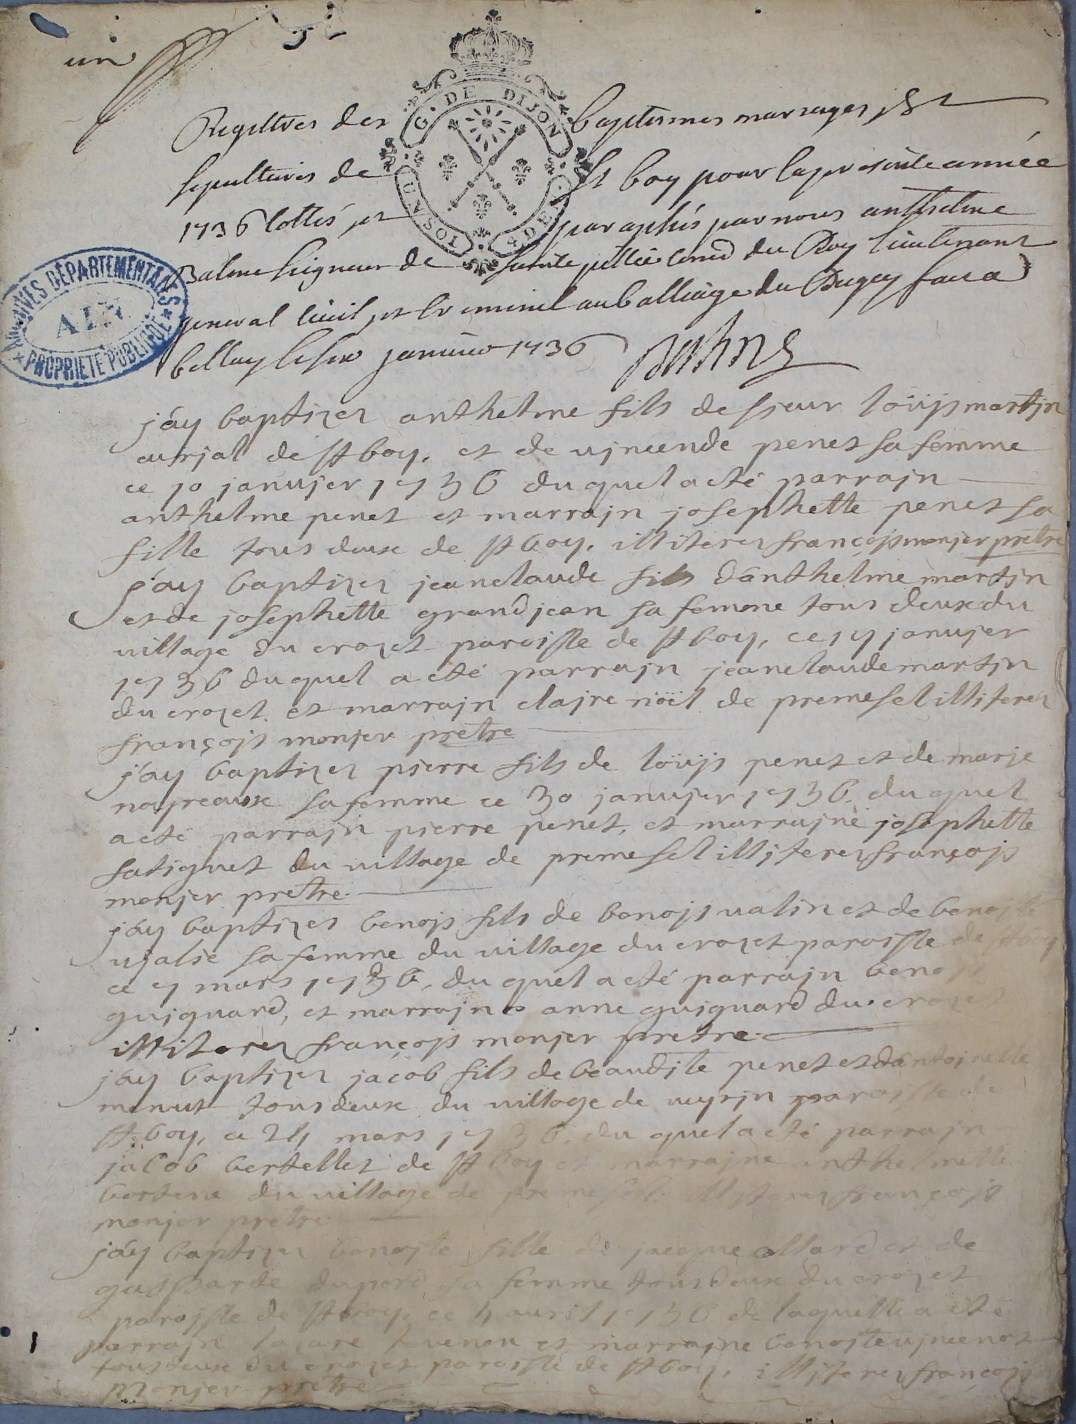 un
G. DE DIJON
UN SOL
4 DEN
Registres des baptesmes mariages et
sepultures de St boy pour la presente année
1736 cottés et paraphés par nous anthelme
Balme seigneur de Sainte Jullie Cons du Roy Lieutenant
general Civil et Criminel au balliage du Bugey fait a
belley le six janvier 1736
Balme
ARCHIVES DÉPARTEMENTALES
AIN
PROPRIÉTÉ PUBLIQUE
j'ay baptizez anthelme fils de sieur loüys martjn
curjal de St boy, et de vjncende penet sa femme
ce 10 janvjer 1736 duquel a eté parrajn
anthelme penet et marrajn josephette penet sa
fille tous deux de St boy, illiterez françojs monjer prêtre
j'ay baptizez jeanclaude fils d'anthelme martjn
et de josephette grandjean sa femme tous deux du
village du crozet paroisse de St boy, ce 17 janvjer
1736 duquel a eté parrajn jeanclaude martjn
du crozet et marrajn clajre nöel de premesel illiterez
françojs monjer prêtre
j'ay baptizez pjerre fils de loüjs penet et de marje
nojreaux sa femme ce 30 janvjer 1736, du quel
a eté parrajn pjerre penet, et marrajne josephette
satignet du village de premesel illjterez françojs
monjer prêtre
j'ay baptizez benojs fils de benojs valin et de benojte
vjalse sa femme du village du crozet paroisse de St boy
ce 7 mars 1736, du quel a eté parrajn benojt
guiguard, et marrajne anne guiguard du crozet
illiterez françojs monjer prêtre
j'ay baptizez jacob fils de beaudjte penet et d'antojnette
minut tous deux du village de veyrjn paroisse de
St boy, ce 24 mars 1736, du quel a eté parrajn
jacob bertellet de St boy et marrajne anthelmette
bertene du village de premesel illiterez françojs
monjer prêtre
j'ay baptizez benojte fille de jacque allard et de
gasparde duport sa femme tous deux du crozet
parojsse de St boy, ce 4 avril 1736 de laquelle a eté
parrajn lazare et marrajne benojte vjncenot
tous deux du crozet paroisse de St boy, illiterez françojs
monjer prêtre